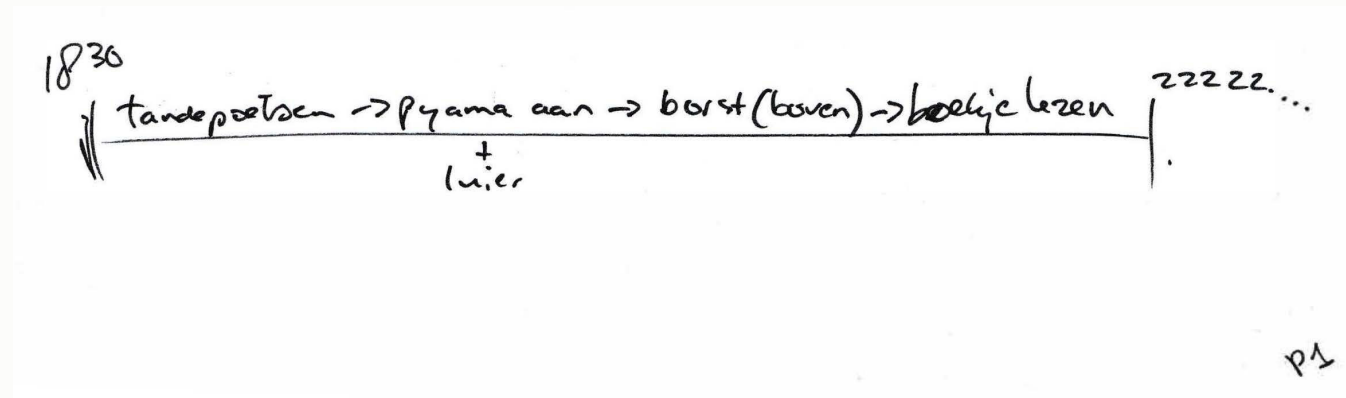 18³⁰
tandepoetsen -> pyama aan -> borst (boven) -> boekje lezen
zzzzz....
+
luier
P1